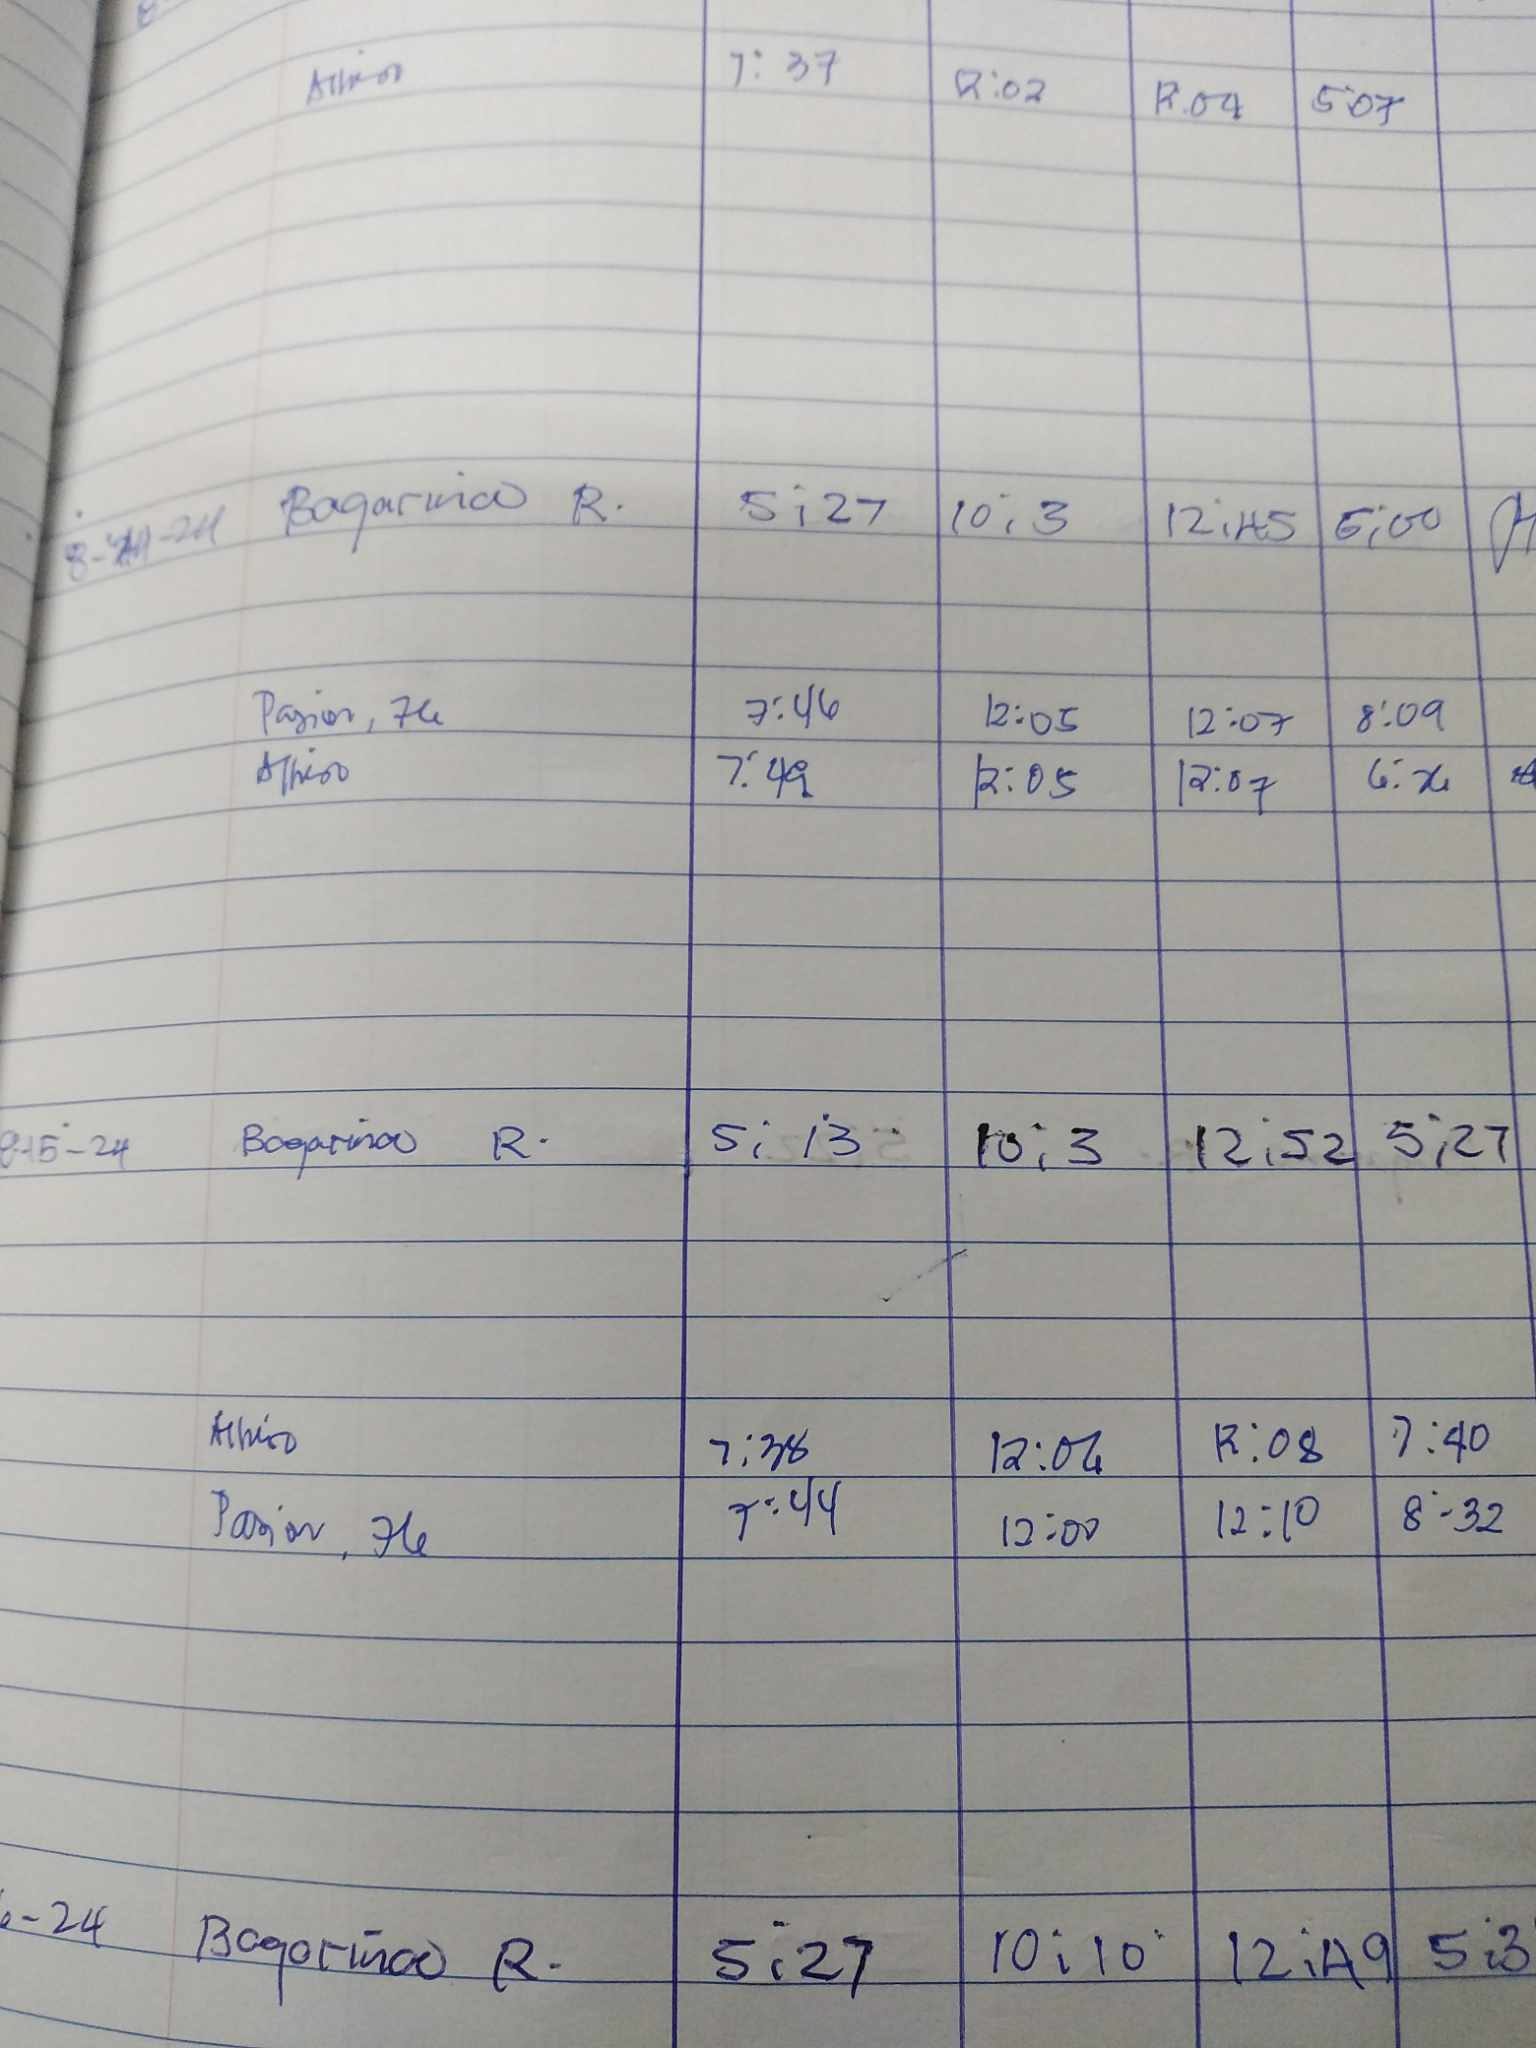 7:37 12:02 12:04 5:07
8-14-24 Bagariñao R. 5:27 10:3 12:45 5:00
7:46 12:05 12:07 8:09
7:49 12:05 12:07
8-15-24 Bagariñao R. 5:13 10:3 12:52 5:27
7:38 12:06 12:08 7:40
7:44 12:00 12:10 8:32
-24 Bagariñao R. 5:27 10:10 12:49 5:3